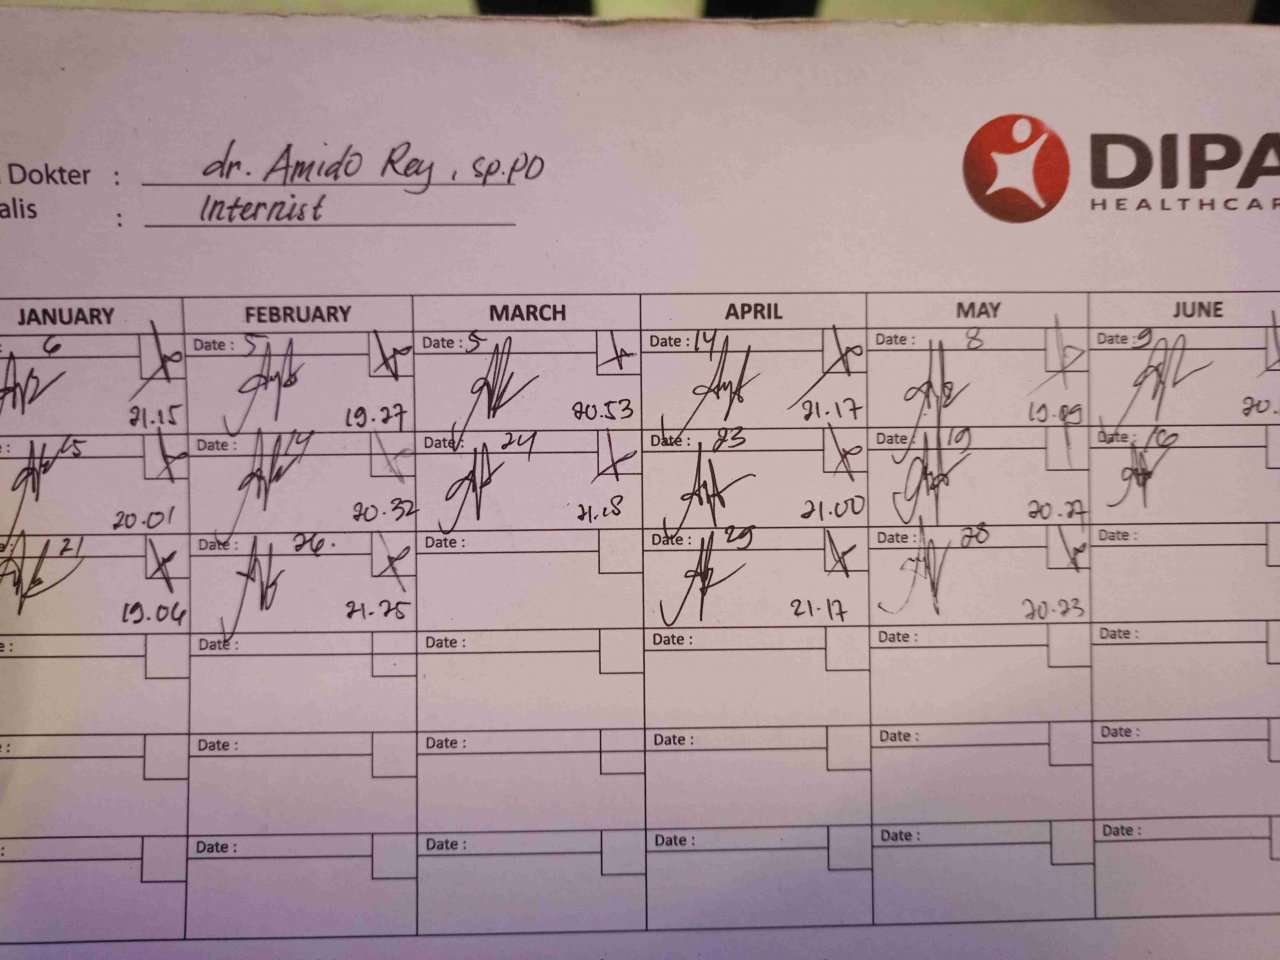 Dokter : dr. Amido Rey, sp.PD
alis : Internist
DIPA
HEALTHCAR
JANUARY FEBRUARY MARCH APRIL MAY JUNE
6 Date : 5 Date : 5 Date : 14 Date : 8 Date : 9
21.15 19.27 20.53 21.17 19.09 20.
15 Date : 14 Date : 24 Date : 23 Date : 19 Date : 16
20.01 20.32 21.18 21.00 20.27
21 Date : 26. Date : Date : 29 Date : 28 Date :
19.04 21.25 21.17 20.23
Date : Date : Date : Date : Date :
Date : Date : Date : Date : Date :
Date : Date : Date : Date : Date :